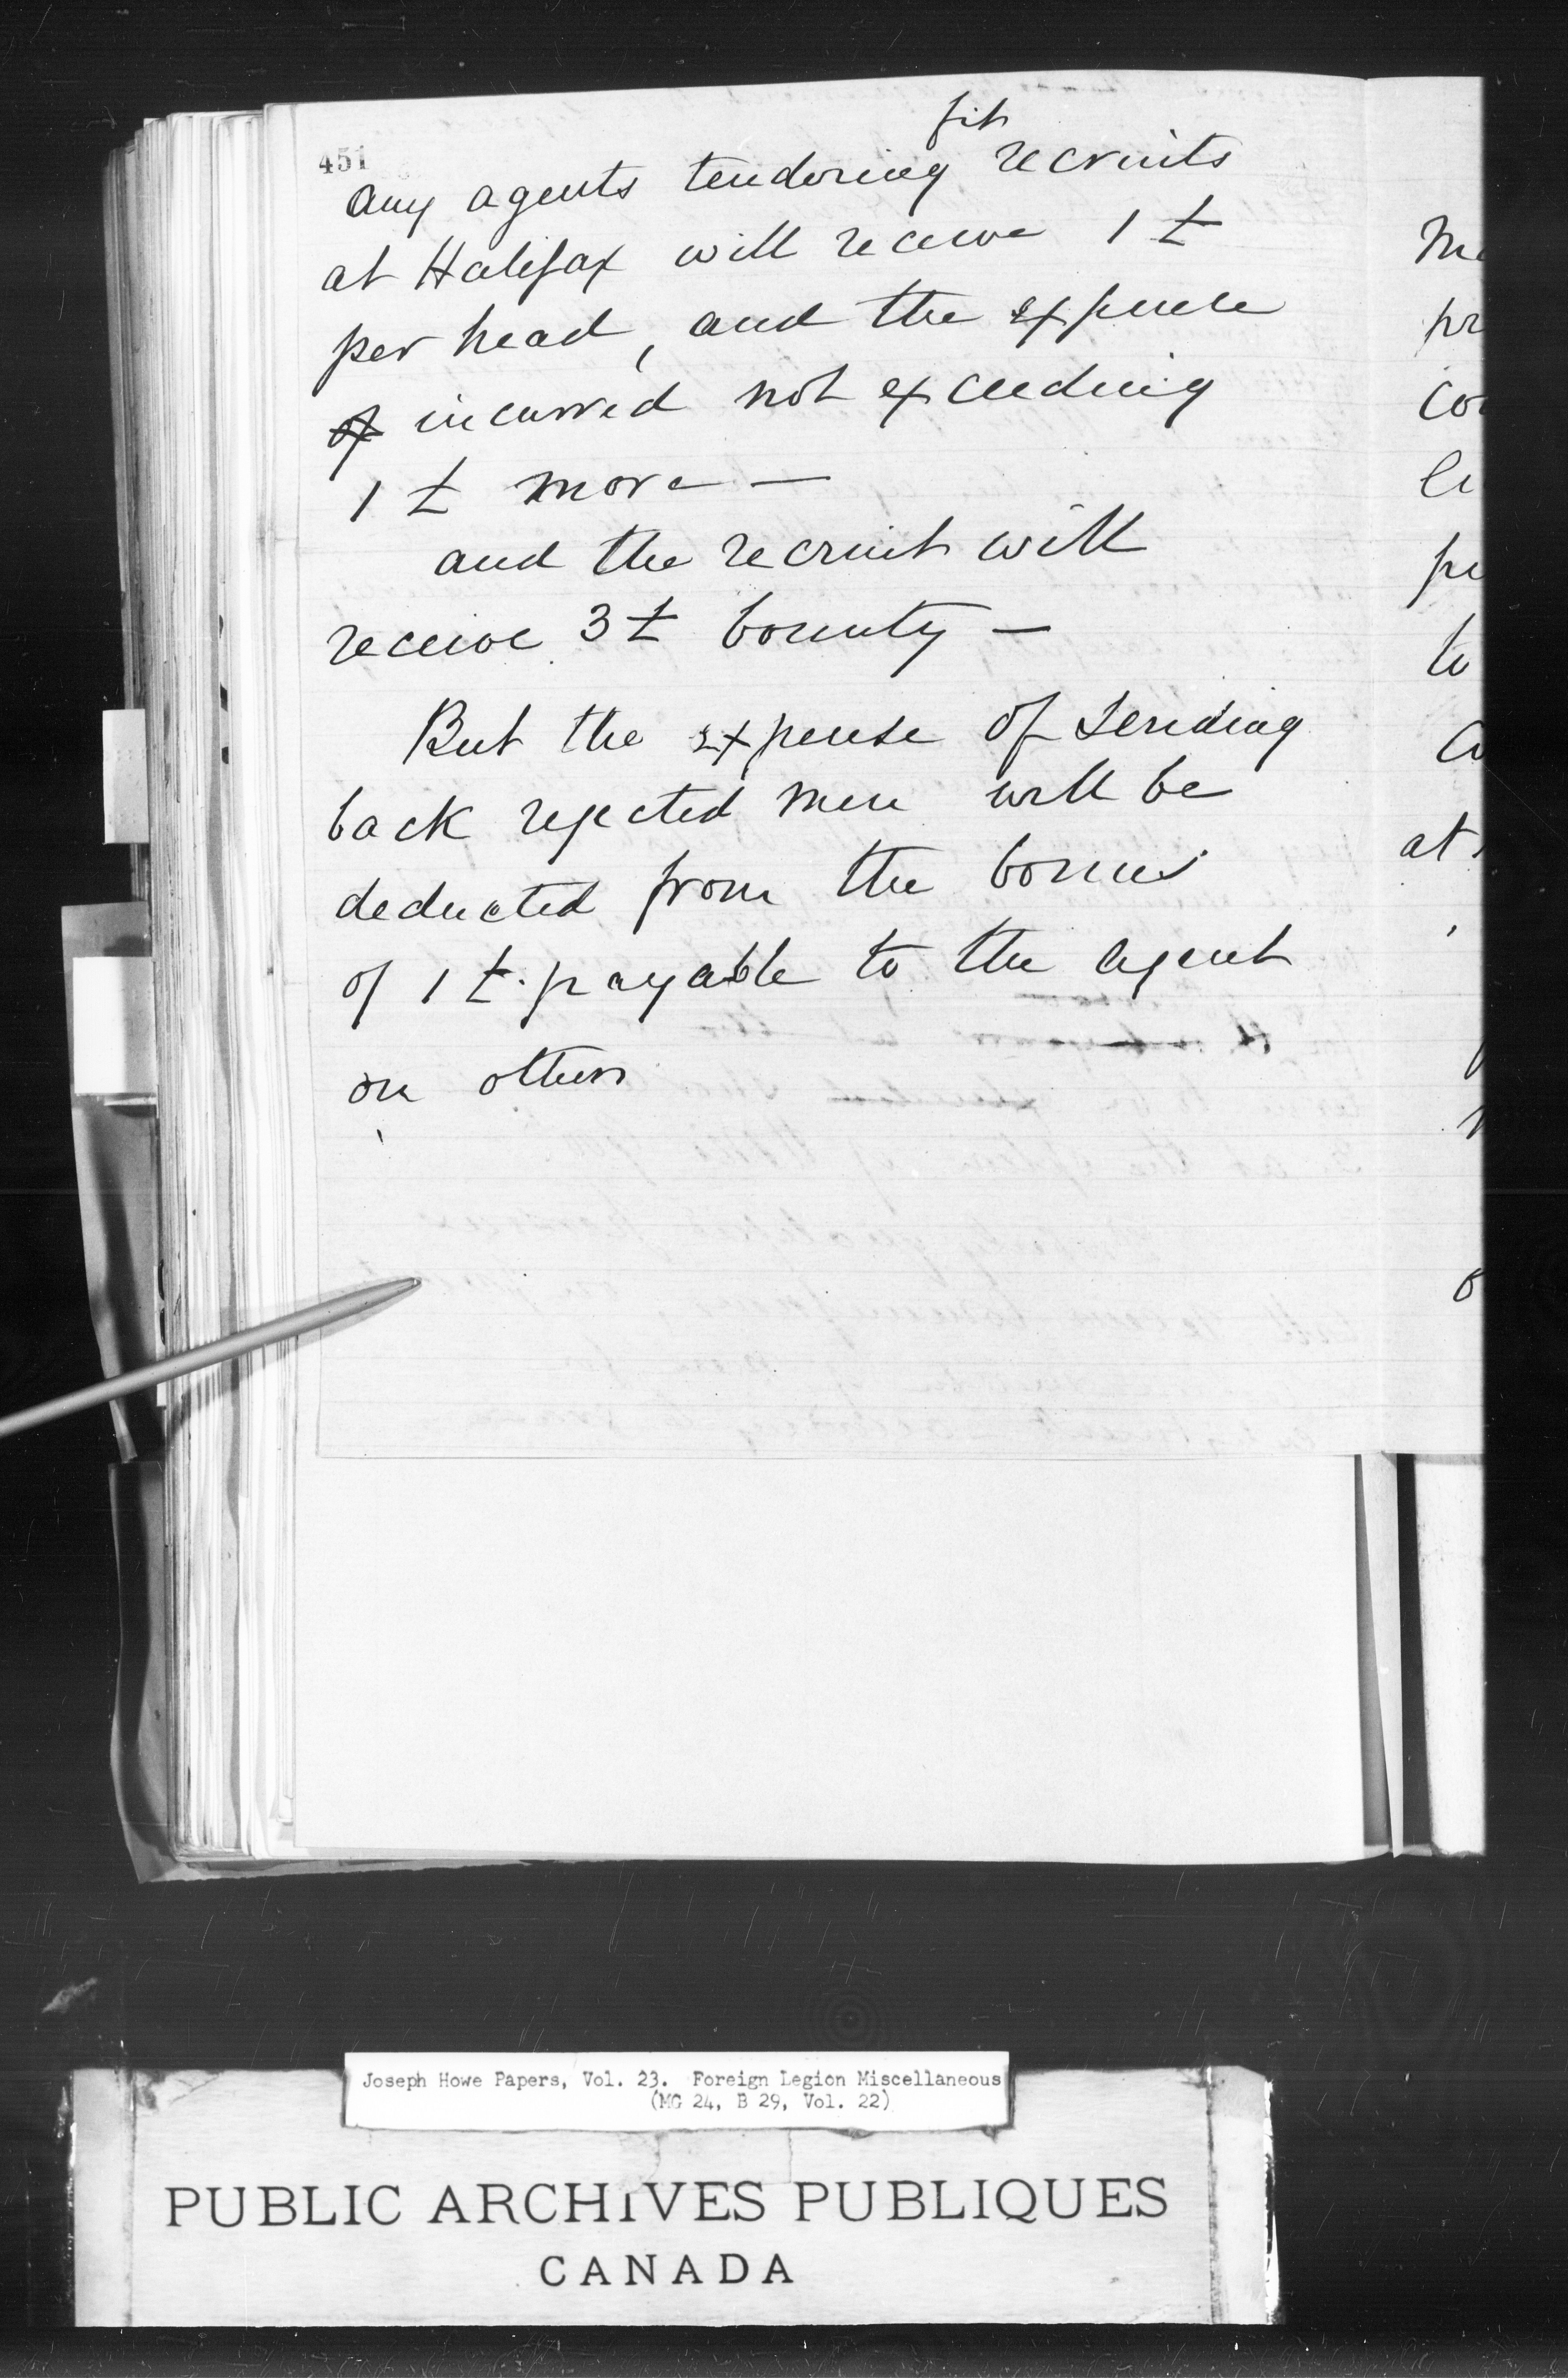 451
fit
Any agents tendering recruits
at Halifax will receive 1 £
per head, and the expense
of incurred not exceeding
1 £ more —
and the recruit will
receive 3 £ bounty —
But the expense of sending
back rejected men will be
deducted from the bonus
of 1 £. payable to the agent
on others
Me
pr
co
le
pe
to
at
Joseph Howe Papers, Vol. 23. Foreign Legion Miscellaneous
(MG 24, B 29, Vol. 22)
PUBLIC ARCHIVES PUBLIQUES
CANADA